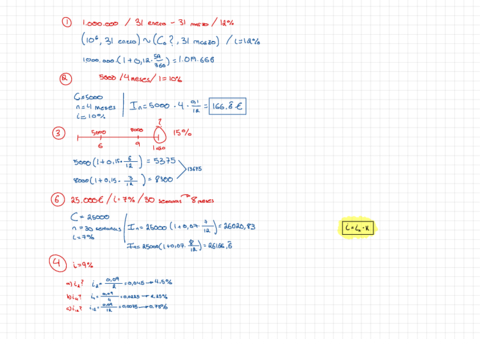 ① 1.000.000 / 31 enero - 31 marzo / 12%
(10⁶, 31 enero) ~ (Cₙ?, 31 marzo) / i=12%
1.000.000 · (1+0,12 · 59/360) = 1.019.666
② 5000 / 4 meses / i=10%
C=5000
n=4 meses
i=10%
Iₙ = 5000 · 4 · 0,1/12 = 166,6̂ €
③ 5000 8000 ? 15%
6 9 1 año
5000 (1+0,15 · 6/12) = 5375
8000 (1+0,15 · 3/12) = 8300
13675
⑥ 25.000€ / i=7% / 30 semanas → 8 meses
C = 25000
n = 30 semanas
i=7%
Iₙ = 25000 (1+0,07 · 7/12) = 26020,83
Iₙ = 25000 (1+0,07 · 8/12) = 26166,6̂
④ i=9%
a) i₂? i₂ = 0,09/2 = 0,045 → 4.5%
b) i₄? i₄ = 0,09/4 = 0,0225 → 2.25%
c) i₁₂? i₁₂ = 0,09/12 = 0,0075 → 0,75%
i = iₖ · k